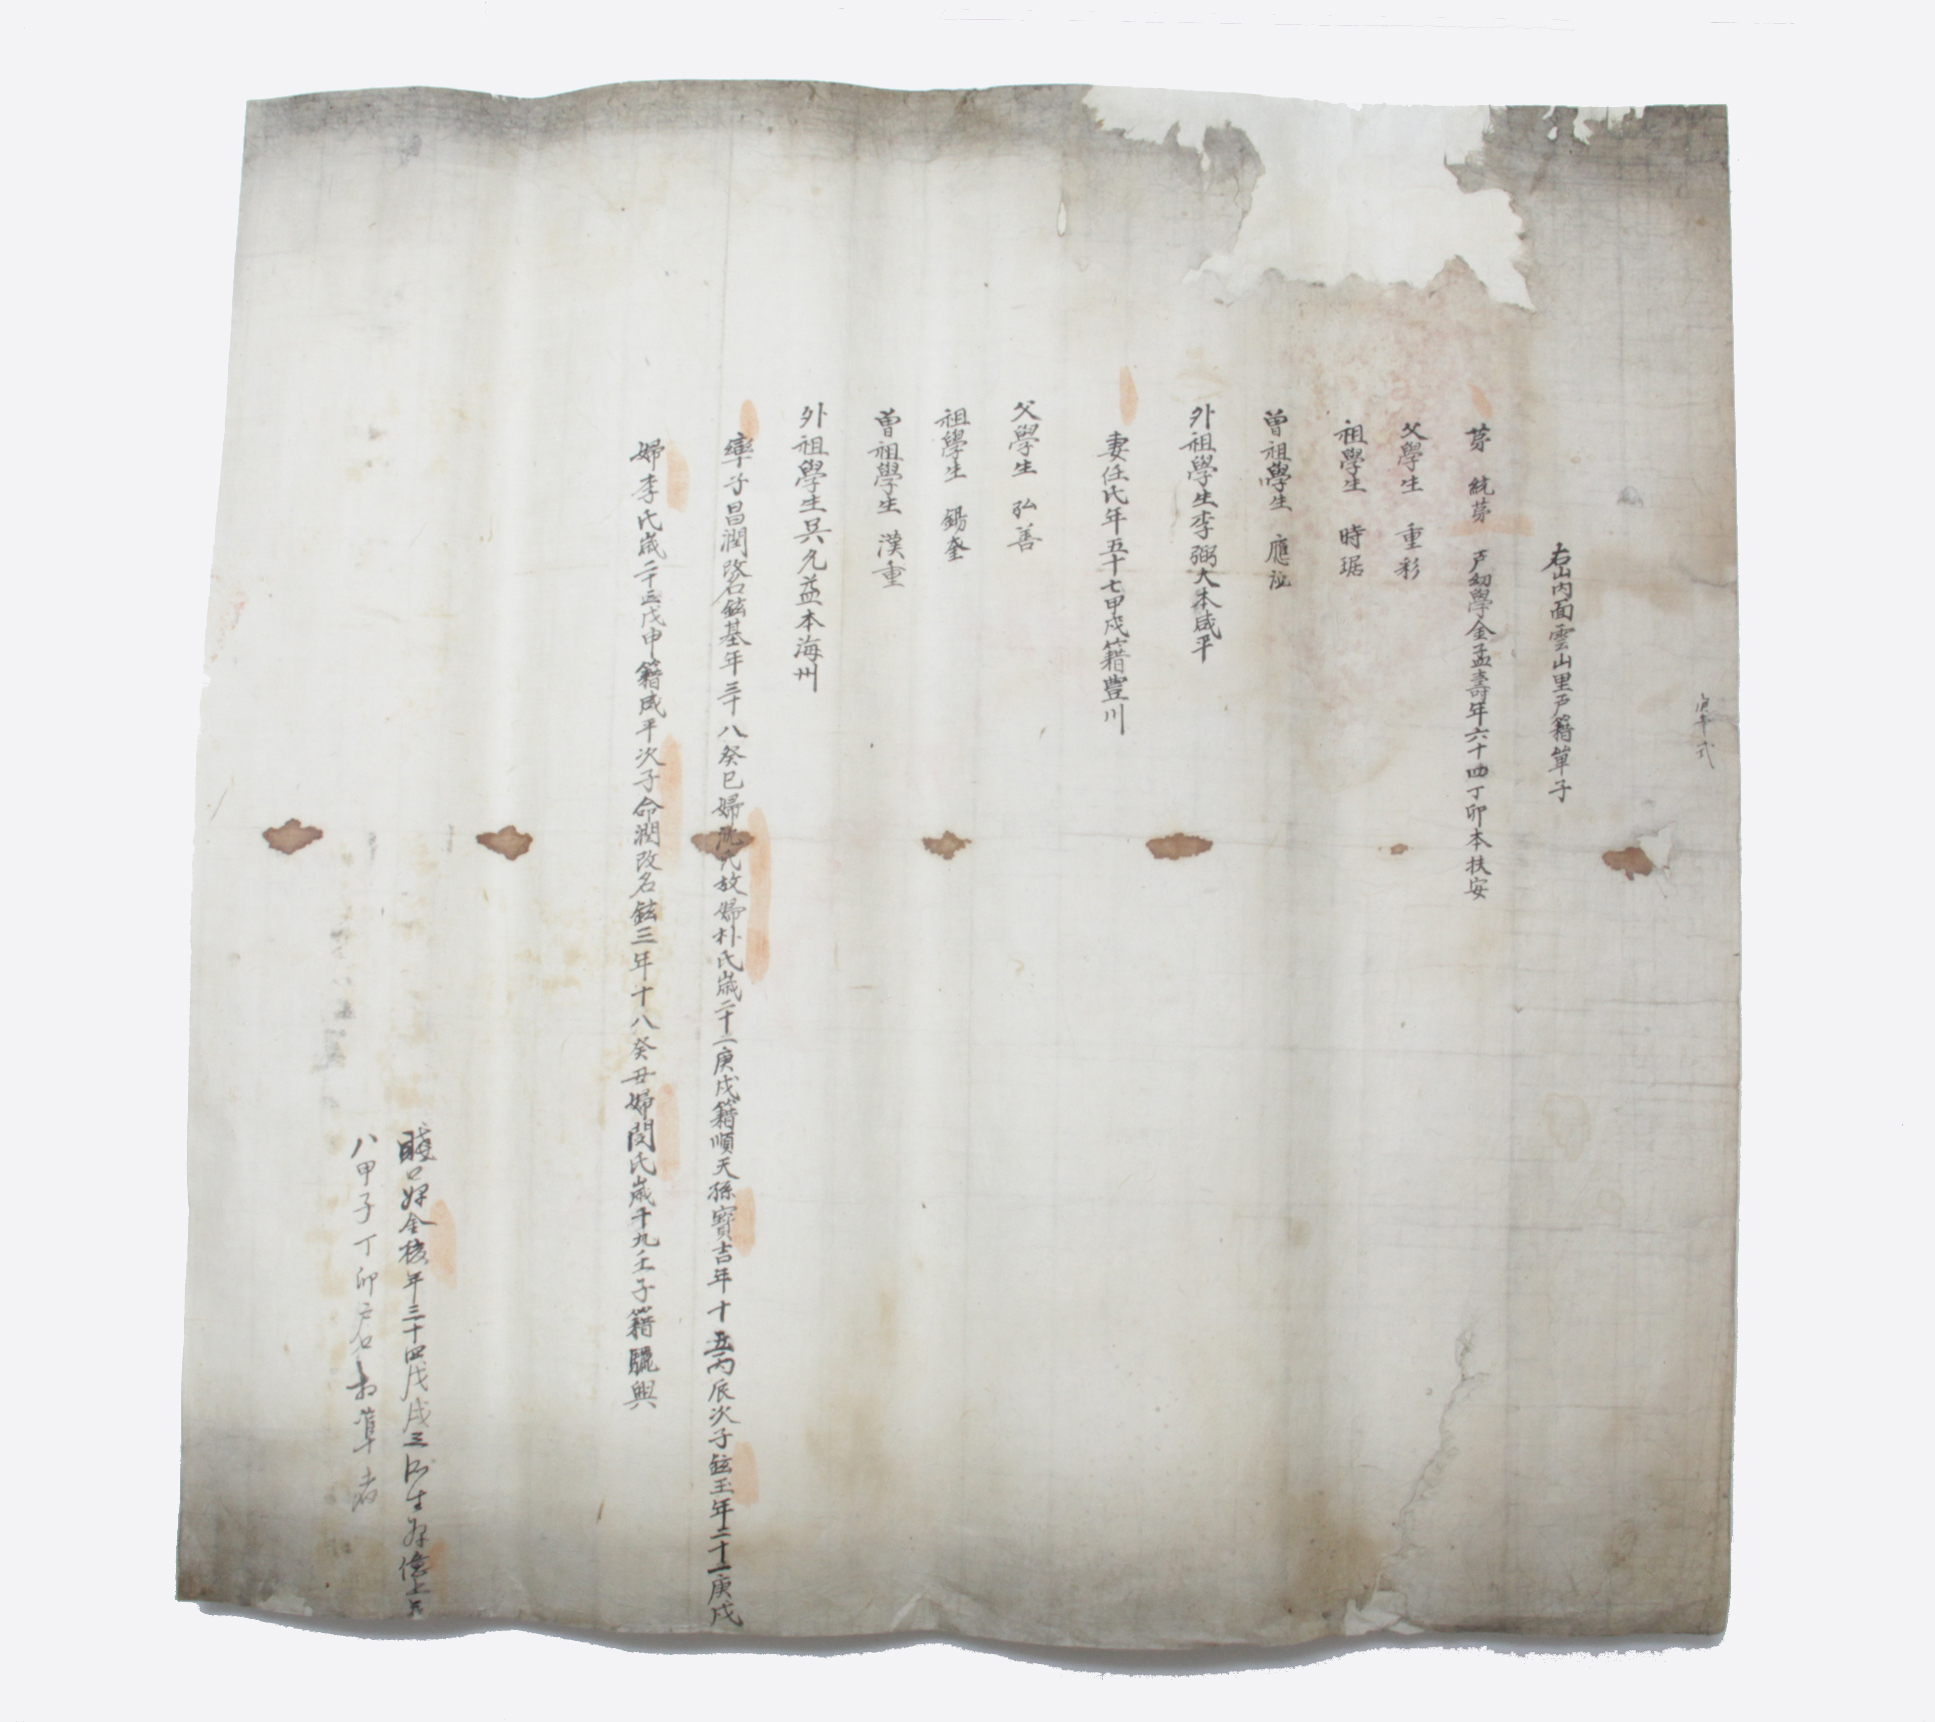 庚午式
右山內面雲山里戶籍單子
苐 統苐 戶幼學金孟壽年六十四丁卯本扶安
父學生 重彩
祖學生 時琚
曾祖學生 應
外祖學生李弼大本咸平
妻任氏年五十七甲戌籍豊川
父學生 弘善
祖學生 錫奎
曾祖學生 漢重
外祖學生吳允益本海州
率子昌潤改名鉉基年三十八癸巳婦 氏故婦朴氏歲二十一庚戌籍順天孫寶吉年十五丙辰次子鉉玉年二十一庚戌
婦李氏歲二十三戊申籍咸平次子命潤改名鉉三年十八癸丑婦閔氏歲十九壬子籍驪興
賤口婢金 年三十四戊戌三所生婢億上年
八甲子丁卯戶口相準者